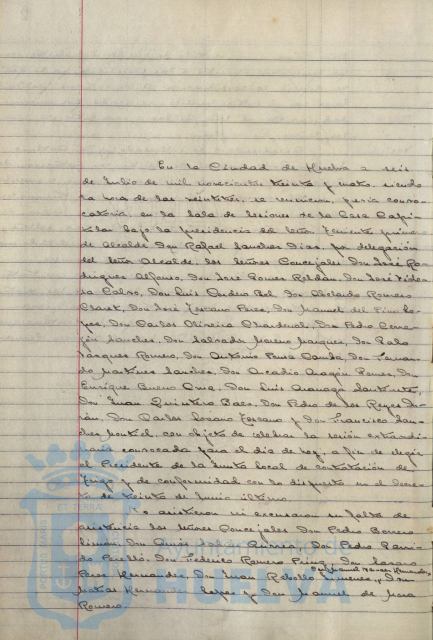 En la Ciudad de Huelva a seis
de Julio de mil novecientos treinta y cuatro, siendo
la hora de las veintitres, se reunieron, previa convo-
catoria, en la Sala de Sesiones de la Casa Capitu-
lar bajo la presidencia del Señor Teniente primero
de Alcalde Don Rafael Sanchez Diaz, por delegación
del Señor Alcalde, los Señores Concejales Don José Ro-
driguez Alfonso, Don José Gomez Roldán, Don José
Calvo, Don Luis Cordero Bel, Don Abelardo Romero
Claret, Don José Terrano Perez, Don Manuel del Pino
Don Carlos Oliveira Chardenal, Don Pedro
Sanchez, Don Salvador Moreno Marquez, Don Pablo
Vazquez Romero, Don Antonio Ponce Don
Martinez Sanchez, Don Arcadio Aragón Gomez, Don
Enrique Bueno Cruz, Don Luis
Don Juan Quintero Baez, Don Pedro de los Reyes
Don Carlos Lozano y Don Francisco San-
chez Montiel, con objeto de celebrar la sesión extraordi-
naria convocada para el dia de hoy, a fin de elegir
el Presidente de la Junta local de contratación de
trigo y de conformidad con lo dispuesto en el Decre-
to de treinta de Junio último.
No asistieron ni excusaron su falta de
asistencia los Señores Concejales Don Pedro Borrero
Limon, Don Don Pedro Garri-
do Perelló, Don Federico Romero Don
Don Manuel
Perez Hernandez, Don Juan Rebollo Jimenez, Don
Matias Hernandez Lopez y Don Manuel de Mora
Romero.
Ayuntamiento de
HUELVA